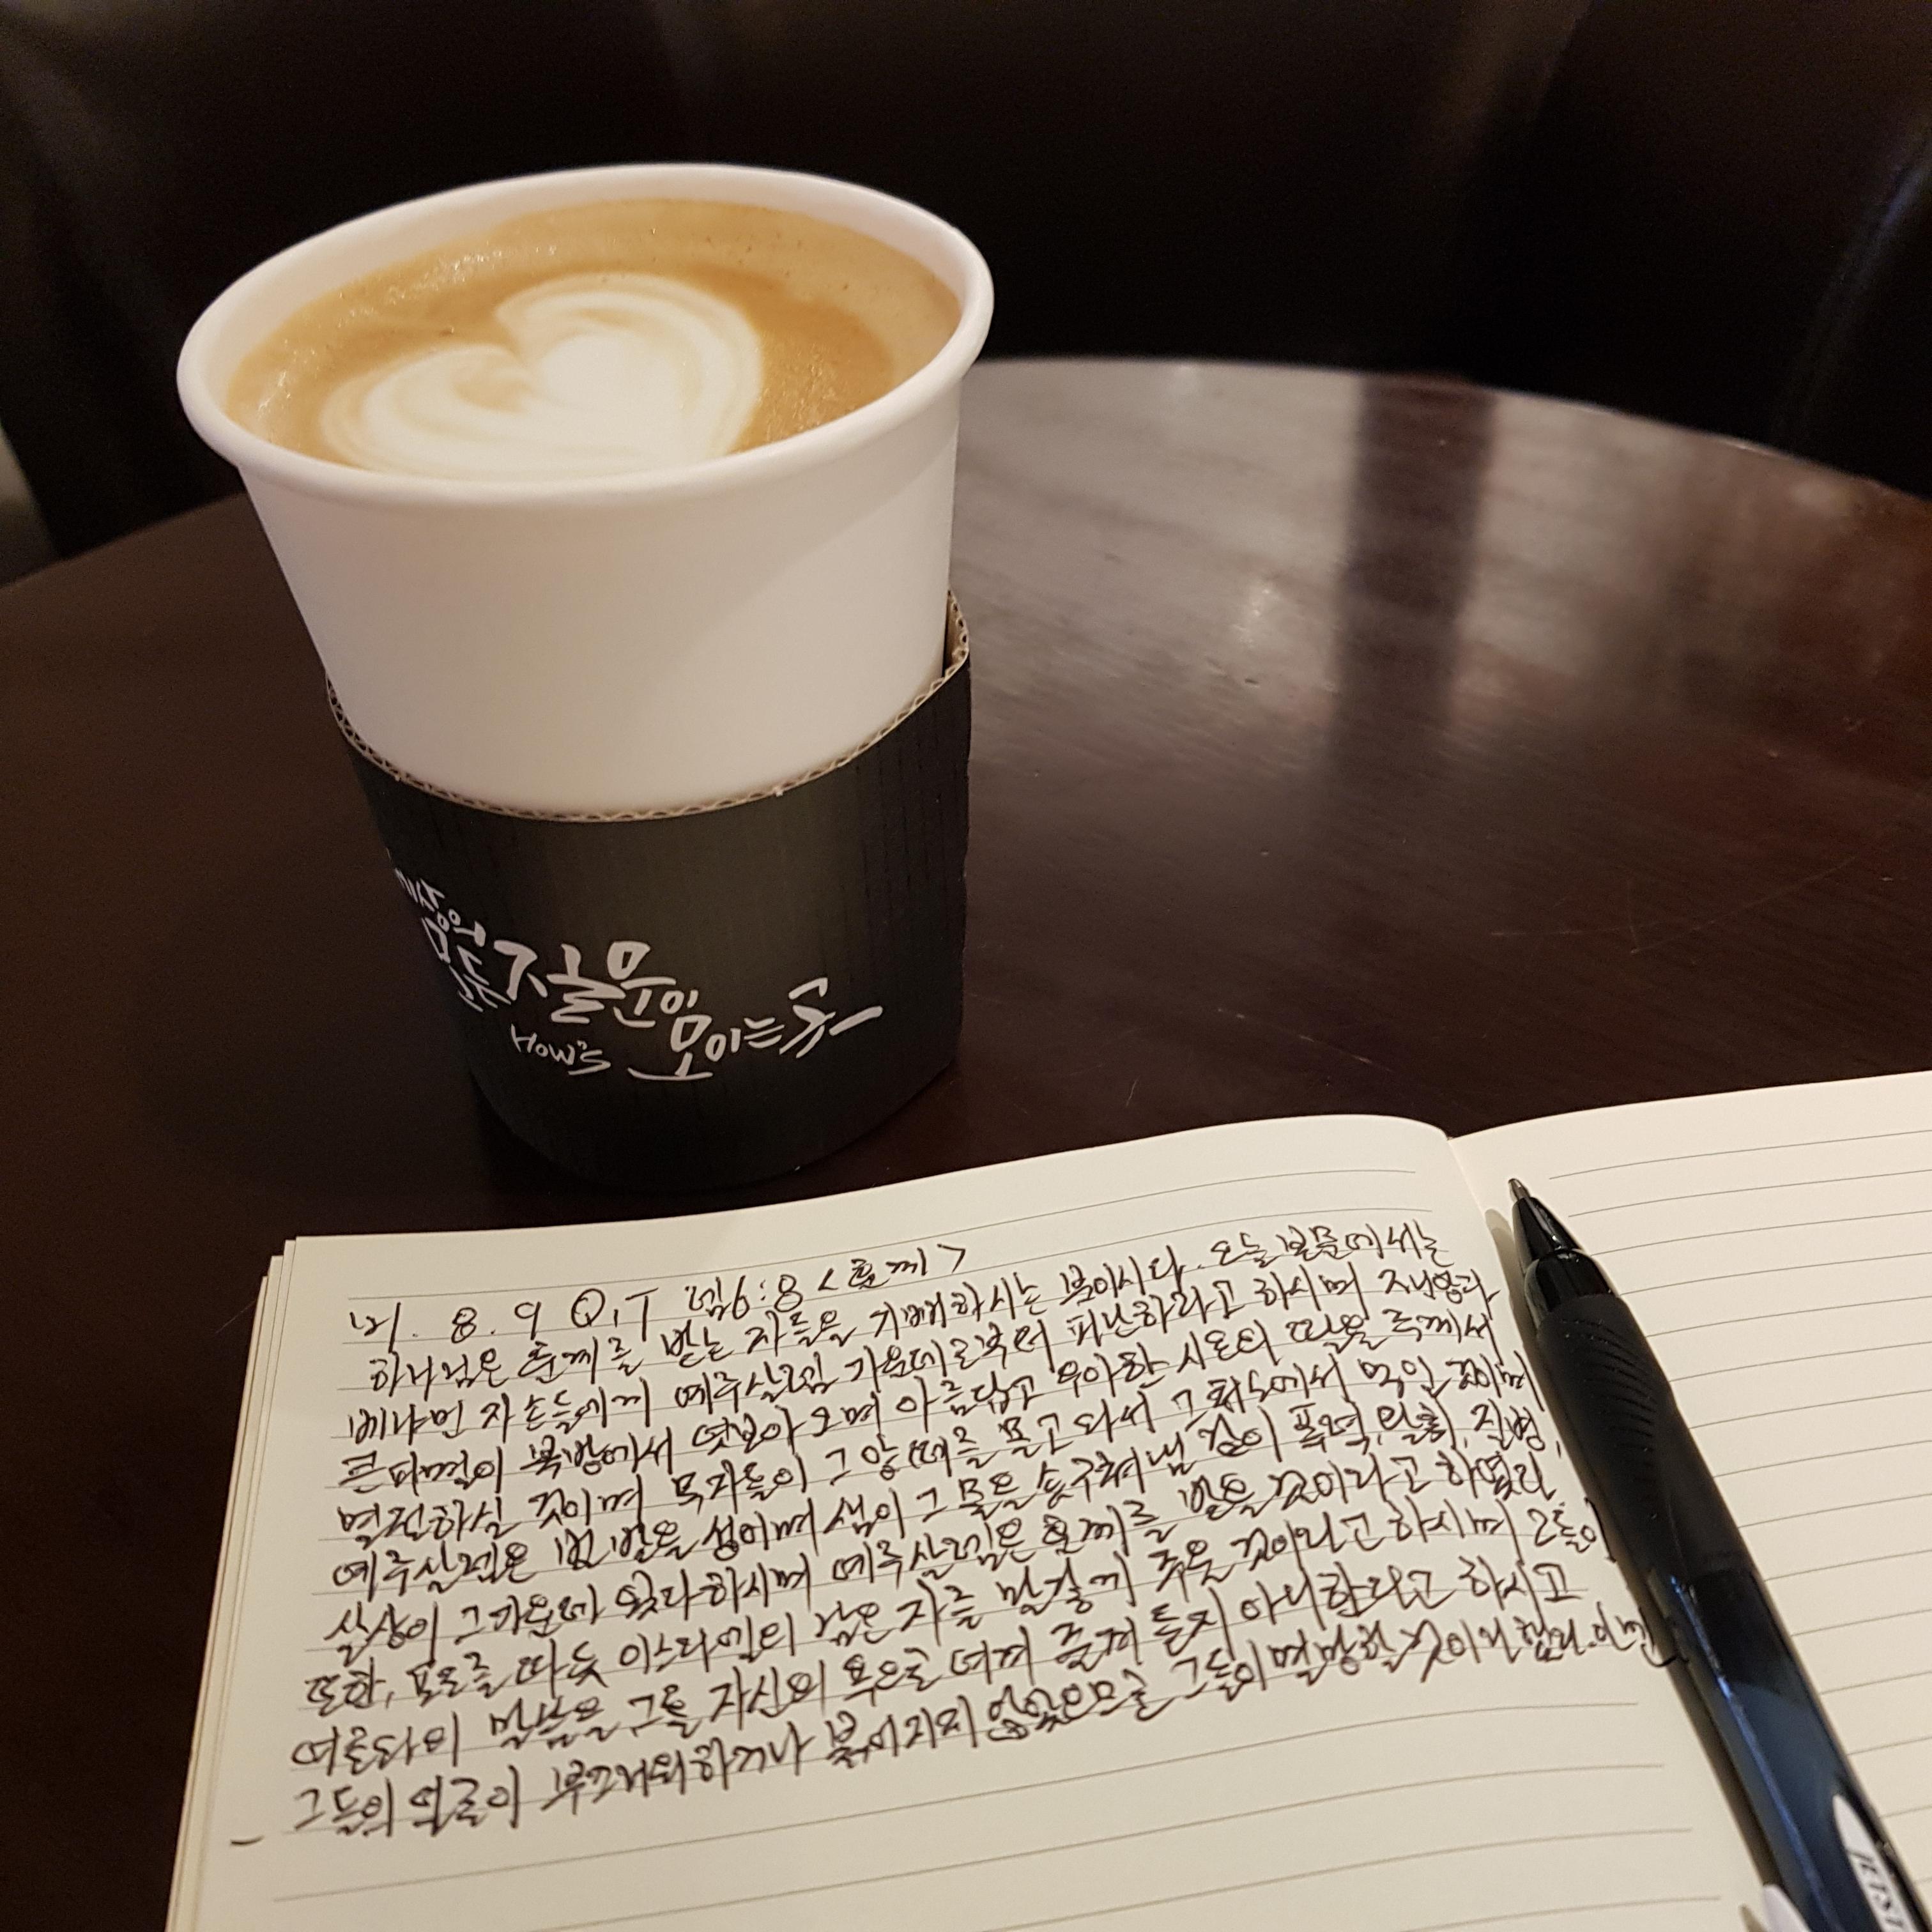 세상의
모든 질문이
How's 모이는 곳
21. 8. 9 Q.T 렘6:8 <훈계>
하나님은 훈계를 받는 자들을 기뻐하시는 분이시다. 오늘 본문에서는
베냐민 자손들에게 예루살렘 가운데로부터 피난하라고 하시며 재앙과
큰 파멸이 북방에서 엿보아 오며 아름답고 우아한 시온의 딸을 주께서
멸절하실 것이며 목자들이 그 양떼를 몰고 와서 그 처소에서 먹일 것이며
예루살렘은 벌 받을 성이며 샘이 그 물을 솟구쳐냄 같이 폭력, 탈취, 질병,
살상이 그 가운데 있다 하시며 예루살렘은 훈계를 받을 것이라고 하였다.
또한, 포도를 따듯 이스라엘의 남은 자를 말갛게 주울 것이라고 하시며 그들이
여호와의 말씀을 그들 자신의 욕으로 여겨 즐겨 듣지 아니한다고 하시고
그들의 얼굴이 부끄러워하거나 붉어지지 않았으므로 그들이 멸망할 것이라 합니다. 아멘